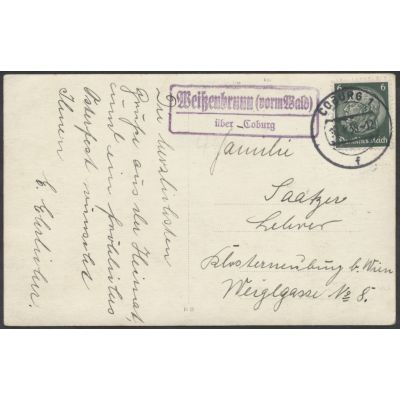 Die herzlichsten
Grüße aus der Heimat,
und ein fröhliches
Osterfest wünscht
Ihnen
E. Ehrlicher.
Weißenbrunn (vorm Wald)
über Coburg
COBURG 1
f
6 6
Deutsches Reich
Familie
Saatzer
Lehrer
Klosterneuburg b. Wien
Weiglgasse № 8.